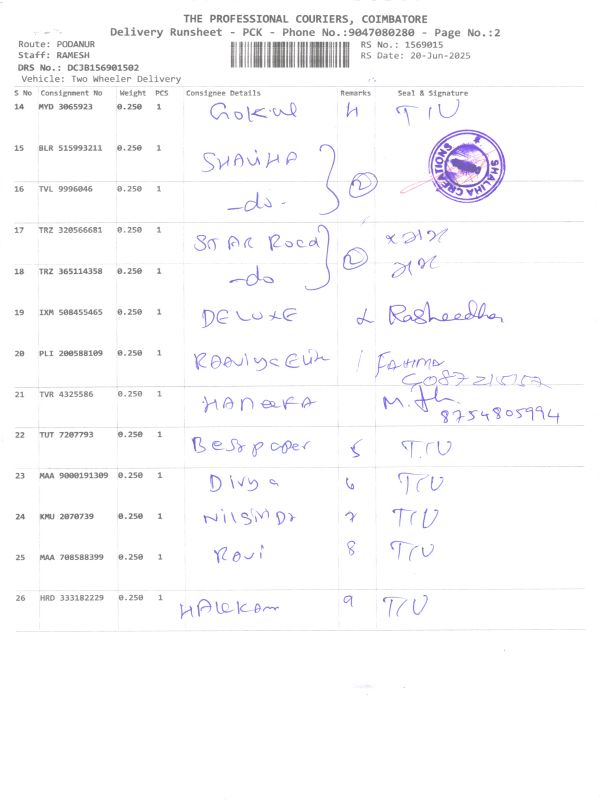 THE PROFESSIONAL COURIERS, COIMBATORE
Delivery Runsheet - PCK - Phone No.:9047080280 - Page No.:2
Route: PODANUR RS No.: 1569015
Staff: RAMESH RS Date: 20-Jun-2025
DRS No.: DCJB156901502
Vehicle: Two Wheeler Delivery
S No Consignment No Weight PCS Consignee Details Remarks Seal & Signature
14 MYD 3065923 0.250 1 Gokul 4 T/U
15 BLR 515993211 0.250 1 SHALIHA 2 SHALIHA CREATIONS
16 TVL 9996046 0.250 1 -do-
17 TRZ 320566681 0.250 1 STAR Road 2
18 TRZ 365114358 0.250 1 -do
19 IXM 508455465 0.250 1 DELUXE Rasheedha
20 PLI 200588109 0.250 1 FAHIMA
21 TVR 4325586 0.250 1 HANEEFA M.
8754805994
22 TUT 7207793 0.250 1 Best paper 5 T/U
23 MAA 9000191309 0.250 1 Divya 6 T/U
24 KMU 2070739 0.250 1 7 T/U
25 MAA 708588399 0.250 1 Ravi 8 T/U
26 HRD 333182229 0.250 1 9 T/U